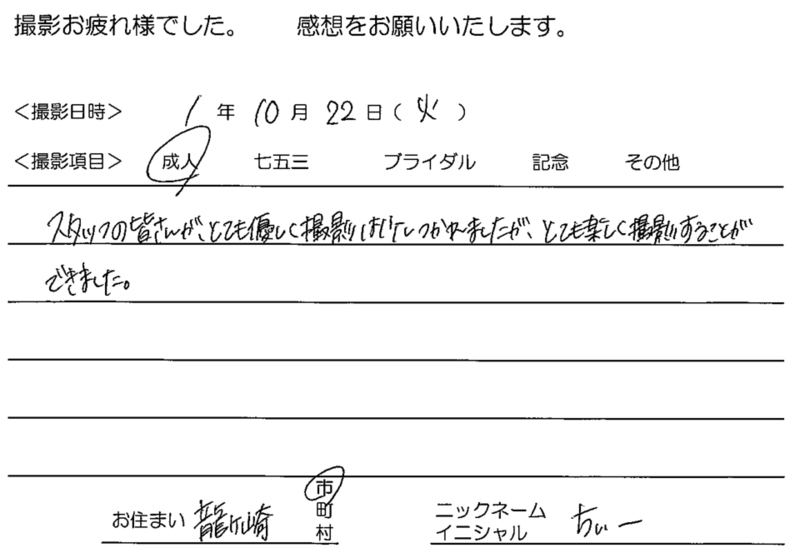 撮影お疲れ様でした。　感想をお願いいたします。
<撮影日時>　1年10月22日(火)
<撮影項目>　成人　七五三　ブライダル　記念　その他
スタッフの皆さんが、とても優しく撮影は行いつかれましたが、とても楽しく撮影することが
できました。
お住まい 龍ヶ崎 市町村　ニックネーム イニシャル ちぃー